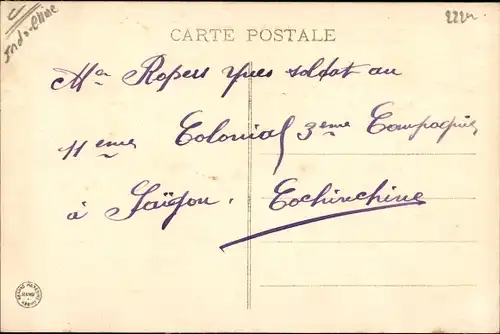 Indo-Chine
CARTE POSTALE
Mr Ropers Yves soldat au
11ème Colonial 3ème Compagnie
à Saïgon. Cochinchine